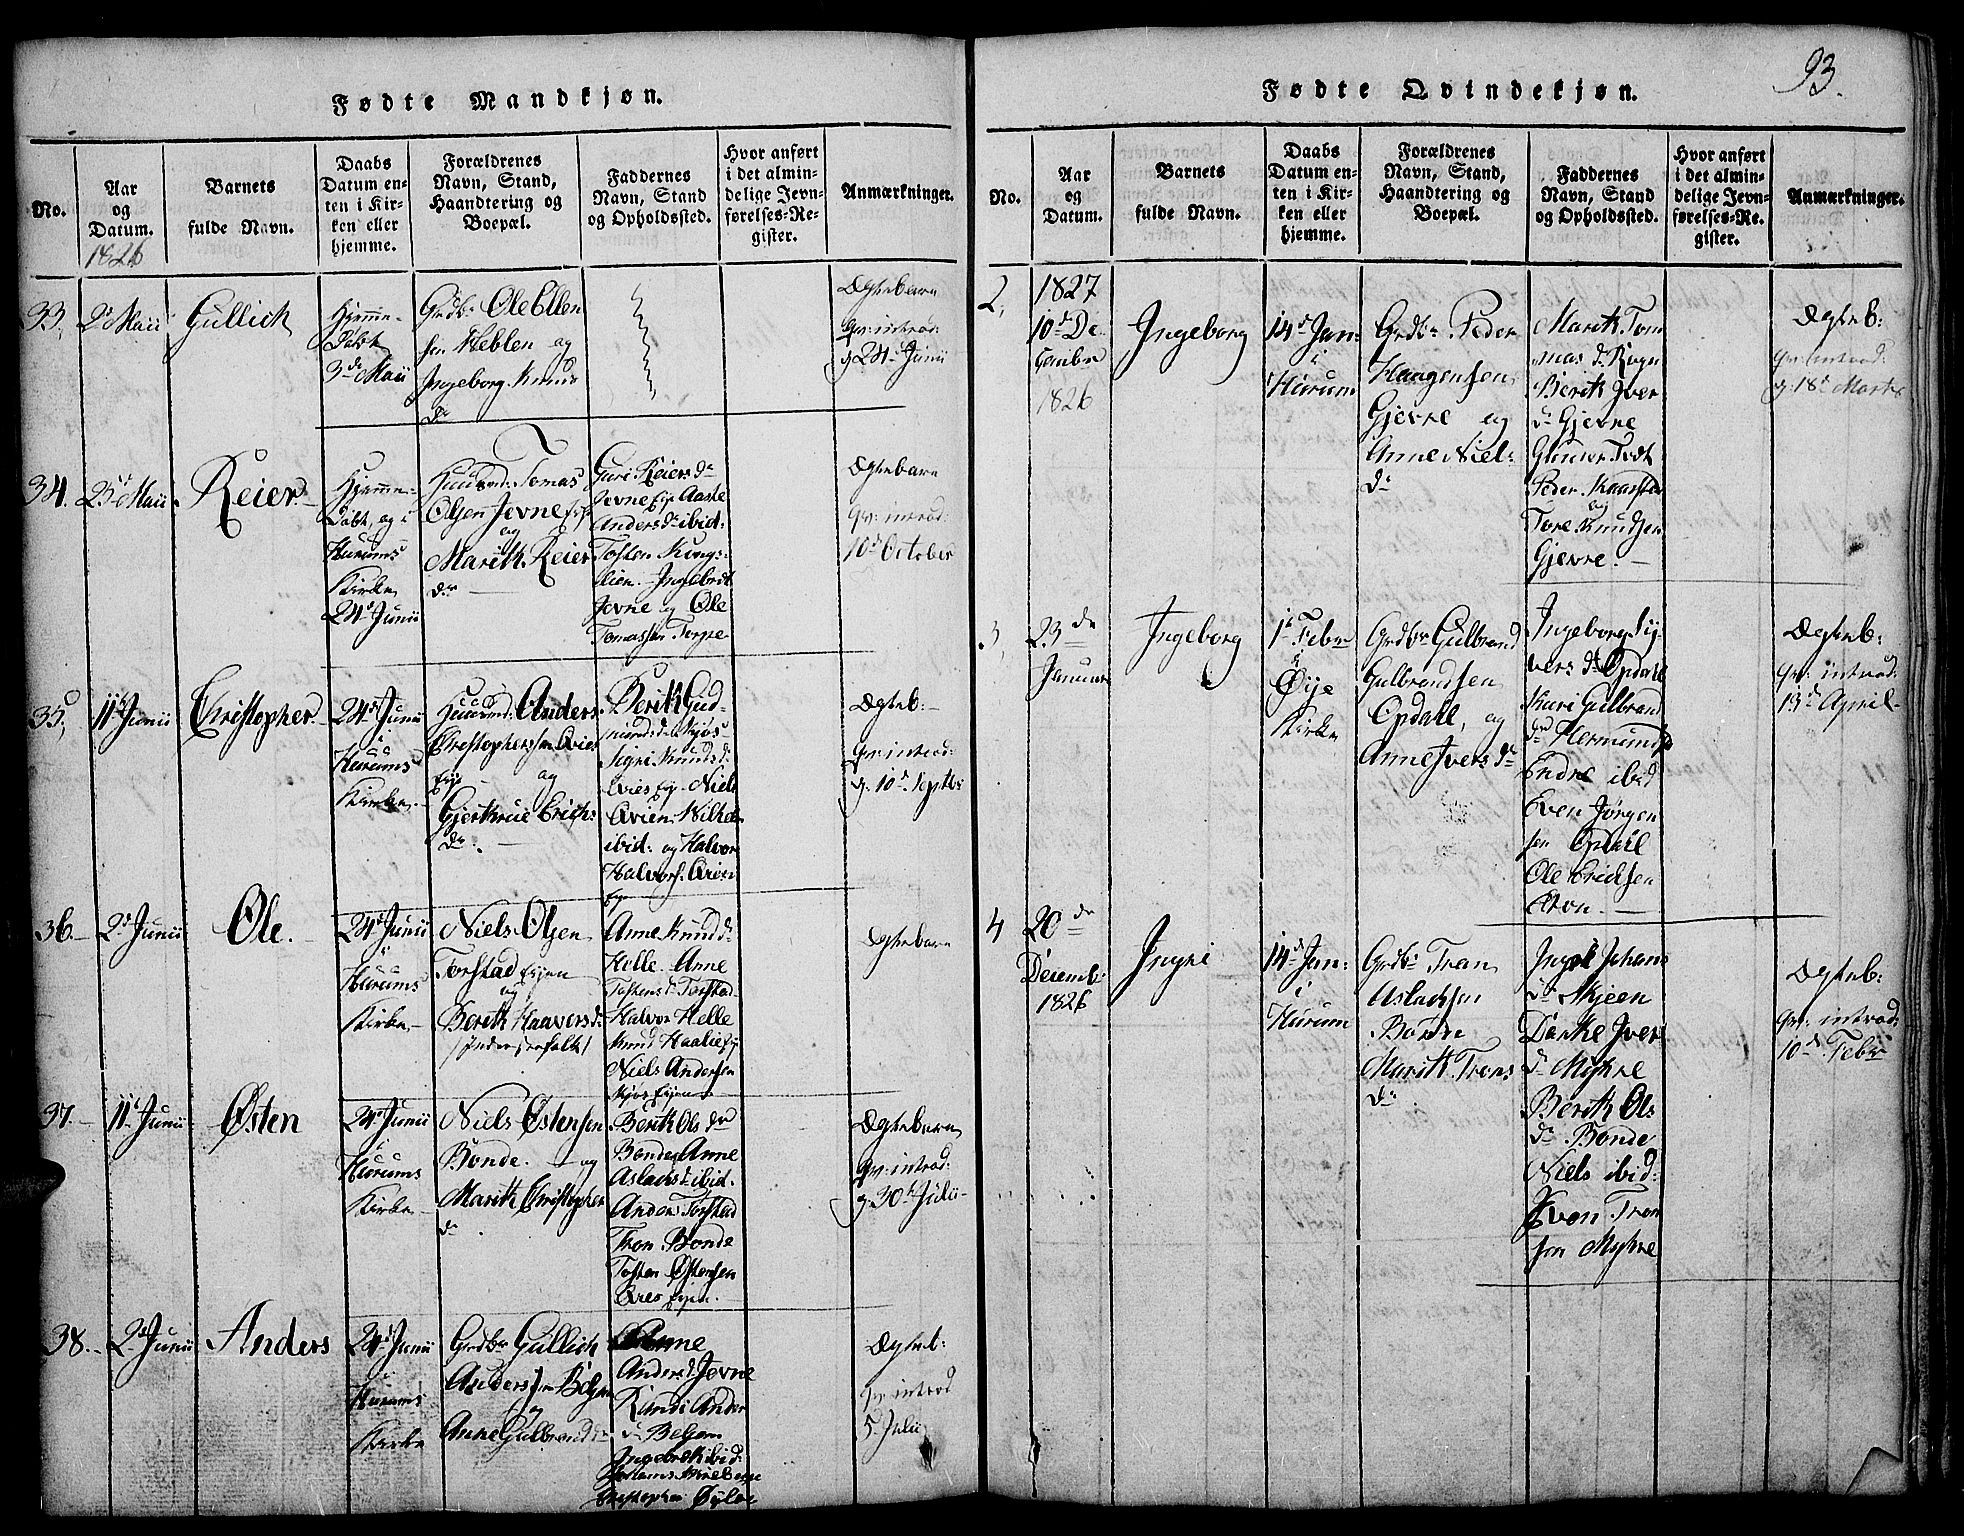 93.
Fødte Mandkjøn.
No.
Aar og Datum.
1826
Barnets fulde Navn.
Daabs Datum enten i Kirken eller hjemme.
Forældrenes Navn, Stand, Haandtering og Boepæl.
Faddernes Navn, Stand og Opholdssted.
Hvor anført i det almindelige Jevnførelses-Register.
Anmærkninger.
33,
2d Maii
Gullich
Hjemme-
Døbt
3de Maii
Grdbr Ole Ellen
sen Heblen og
Ingeborg Knuds
dr
Ægtebarn
qv: introd:
d. 24d Junii
34.
25d Maii
Reier
Hjemme-
Døbt, og i
Hurums
Kirke
24d Junii
Huusmd: Tomas
Olsen Jevne
og
Marith Reier
dr
Guri Reiers dr
Jevne Aaste
Anders dr ibid:
Tosten Kongs-
lien. Ingebret
Jevne og Ole
Tomassen Torpe
Ægtebarn
qv: introd:
10d October
35,
11d Junii
Christopher
24d Junii
i
Hurums
Kirke
Huusmd: Anders
Christophersen Qvien
og
Gjertrue Erichs
dr.
Berith Gud
munds dr Kjøs
Sigri Knuds dr
Niels
Qvien. Wilhelm
ibid: og Halvor
Halvors. Qvien
Ægteb:
qv: introd:
d. 10d Septbr
36.
2d Junii
Ole.
24d Junii
i
Hurums
Kirke
Niels Olsen
Torstad Ejen
og
Berith Haavers dr
Anne Knuds dr
Helle. Anne
Tostens dr Torstad
Halvor Helle
Knud
Niels Andersen
Kjøs Ejen
Ægtebarn
37.
11d Junii
Østen
24d Junii
i
Hurums
Kirke
Niels Østensen
Bonde. og
Marith Christopher
dr
Berith Ols dr
Bonde Anne
Aslachs dr ibid.
Andor Torstad
Tron Bonde
Tosten Østensen
Ægtebarn
qv: introd:
d. 30d Julii
38.
2d Junii
Anders
24d Junii
i
Hurums
Kirke
Grdbr Gullich
Andersen Bølgen
og
Anne Gulbrands dr
Anne
Anders dr Jevne
Randi Anders
dr
Ingebreth ibid:
Ægteb:
qv: introd
5 Julii
Fødte Qvindekjøn.
No.
Aar og Datum.
Barnets fulde Navn.
Daabs Datum enten i Kirken eller hjemme.
Forældrenes Navn, Stand, Haandtering og Boepæl.
Faddernes Navn, Stand og Opholdssted.
Hvor anført i det almindelige Jevnførelses-Register.
Anmærkninger.
2,
1827
10d De-
cember
1826
Ingeborg
14d Jan:
i
Hurum
Grdbr Peder
Haagensen
Gjevre og
Anne Niels
dr
Marith Tom
mas dr Rogn
Berith Iver
dr Gjevre
Gunvor Todt
Peder Kaarstad
og
Tore Knudsen
Gjevre.
Ægteb:
qv: introd:
d: 18d Marts
3,
23de
Januar
Ingeborg
1te Febr
i
Øye
Kirke
Grdbr Gulbrand
Gulbrandsen
Opdal, og
Anne Ivers dr
Ingeborg Sy-
vers dr Opdahl
Kari Gulbrand
dr Hermund
Endre ibid
Even Jørgen
sen Opdal
Ole Erichsen
Ægteb:
qv: introd:
13d April
4
20de
Decemb:
1826
Ingri
14d Jan:
i
Hurum
Grdbr Tron
Aslachsen
Bonde
Marith Trons
dr
Ingri Johans
dr Skjeen
Dorthe Iver
dr Mykre
Berith Ols
dr Bonde
Niels ibid:
Even Tron
sen Mykre
Ægteb:
qv: introd:
10d Febr